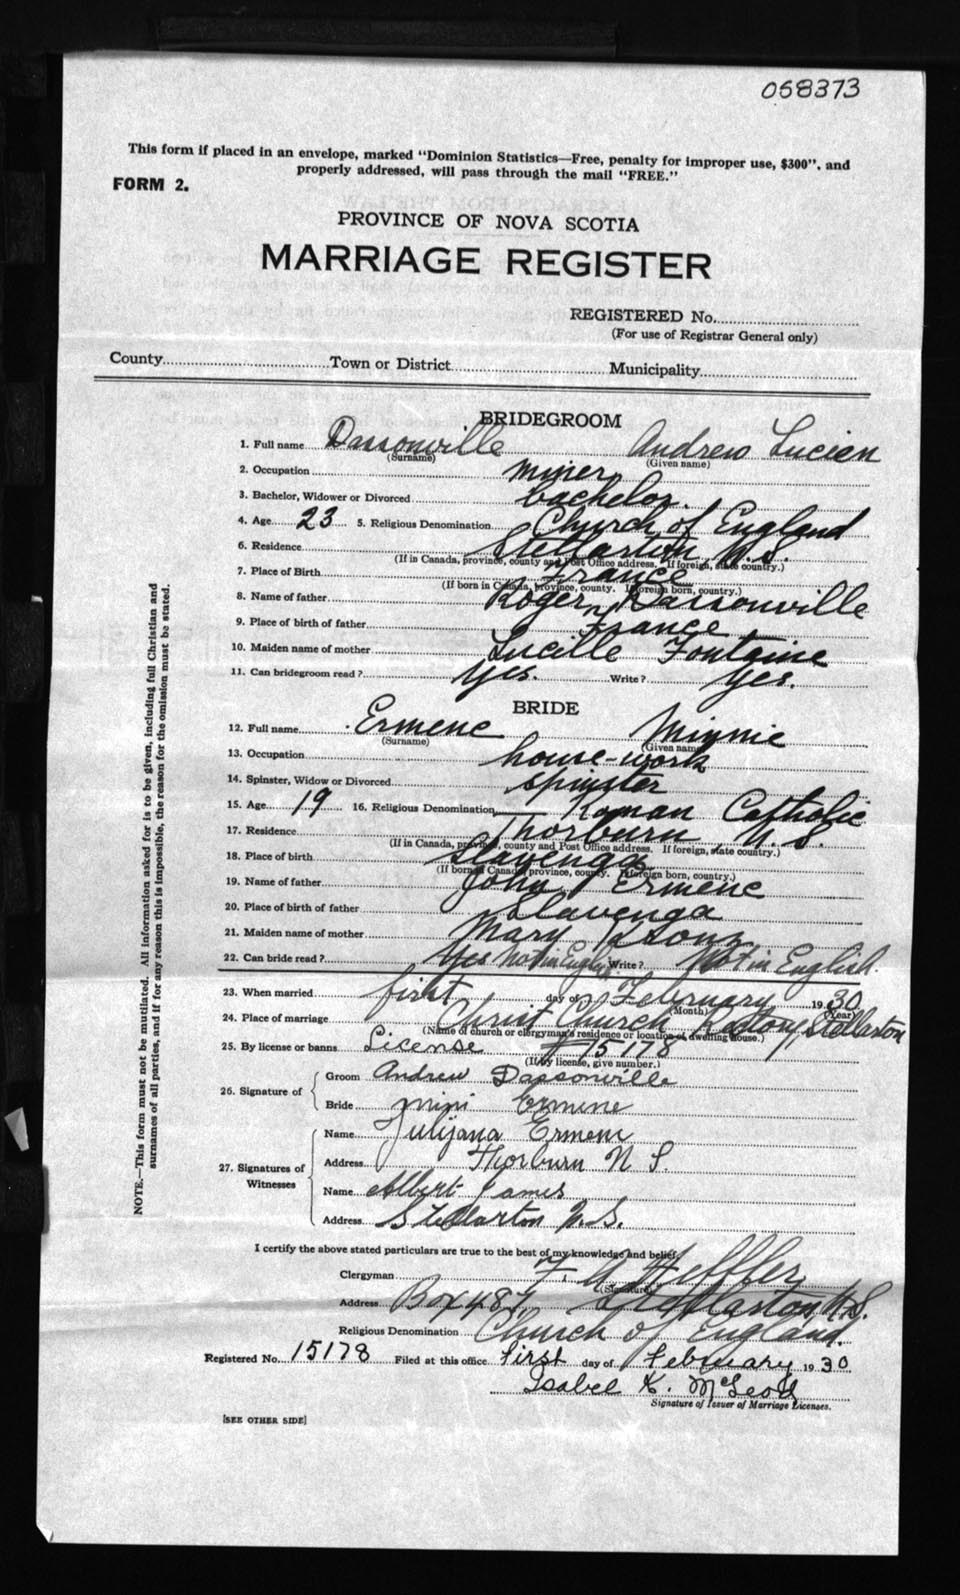 058373
This form if placed in an envelope, marked "Dominion Statistics—Free, penalty for improper use, $300", and
properly addressed, will pass through the mail "FREE."
FORM 2.
PROVINCE OF NOVA SCOTIA
MARRIAGE REGISTER
REGISTERED No.
(For use of Registrar General only)
County Town or District Municipality
BRIDEGROOM
1. Full name Dassonville Andrew Lucien
(Surname) (Given name)
2. Occupation miner
3. Bachelor, Widower or Divorced bachelor.
4. Age 23 5. Religious Denomination Church of England
6. Residence Stellarton, N.S.
(If in Canada, province, county and Post Office address. If foreign, state country.)
7. Place of Birth France
(If born in Canada, province, county. If foreign born, country.)
8. Name of father Roger Dassonville
9. Place of birth of father France
10. Maiden name of mother Lucille Fontaine
11. Can bridegroom read? Yes. Write? Yes.
BRIDE
12. Full name Ermenc Minnie
(Surname) (Given name)
13. Occupation house-work
14. Spinster, Widow or Divorced spinster
15. Age 19 16. Religious Denomination Roman Catholic
17. Residence Thorburn, N.S.
(If in Canada, province, county and Post Office address. If foreign, state country.)
18. Place of birth Slavenga
(If born in Canada, province, county. If foreign born, country.)
19. Name of father John Ermenc
20. Place of birth of father Slavenga
21. Maiden name of mother Mary
22. Can bride read? Yes Not in English Write? Not in English.
23. When married first day of February 1930
(Month) (Year)
24. Place of marriage Christ Church Rectory, Stellarton
(Name of church or clergyman's residence or location of dwelling house.)
25. By license or banns License #15178
(If by license, give number.)
26. Signature of
Groom Andrew Dassonville
Bride mini Ermenc
27. Signatures of Witnesses
Name Julijana Ermenc
Address Thorburn N S.
Name Albert James
Address Stellarton N.S.
I certify the above stated particulars are true to the best of my knowledge and belief.
Clergyman Heffler
(Signature)
Address Box 487 Stellarton, N.S.
Religious Denomination Church of England.
Registered No. 15178 Filed at this office first day of February 1930
Isabel K. McLeod
Signature of Issuer of Marriage Licenses.
[SEE OTHER SIDE]
NOTE.—This form must not be mutilated. All information asked for is to be given, including full Christian and
surnames of all parties, and if for any reason this is impossible, the reason for the omission must be stated.